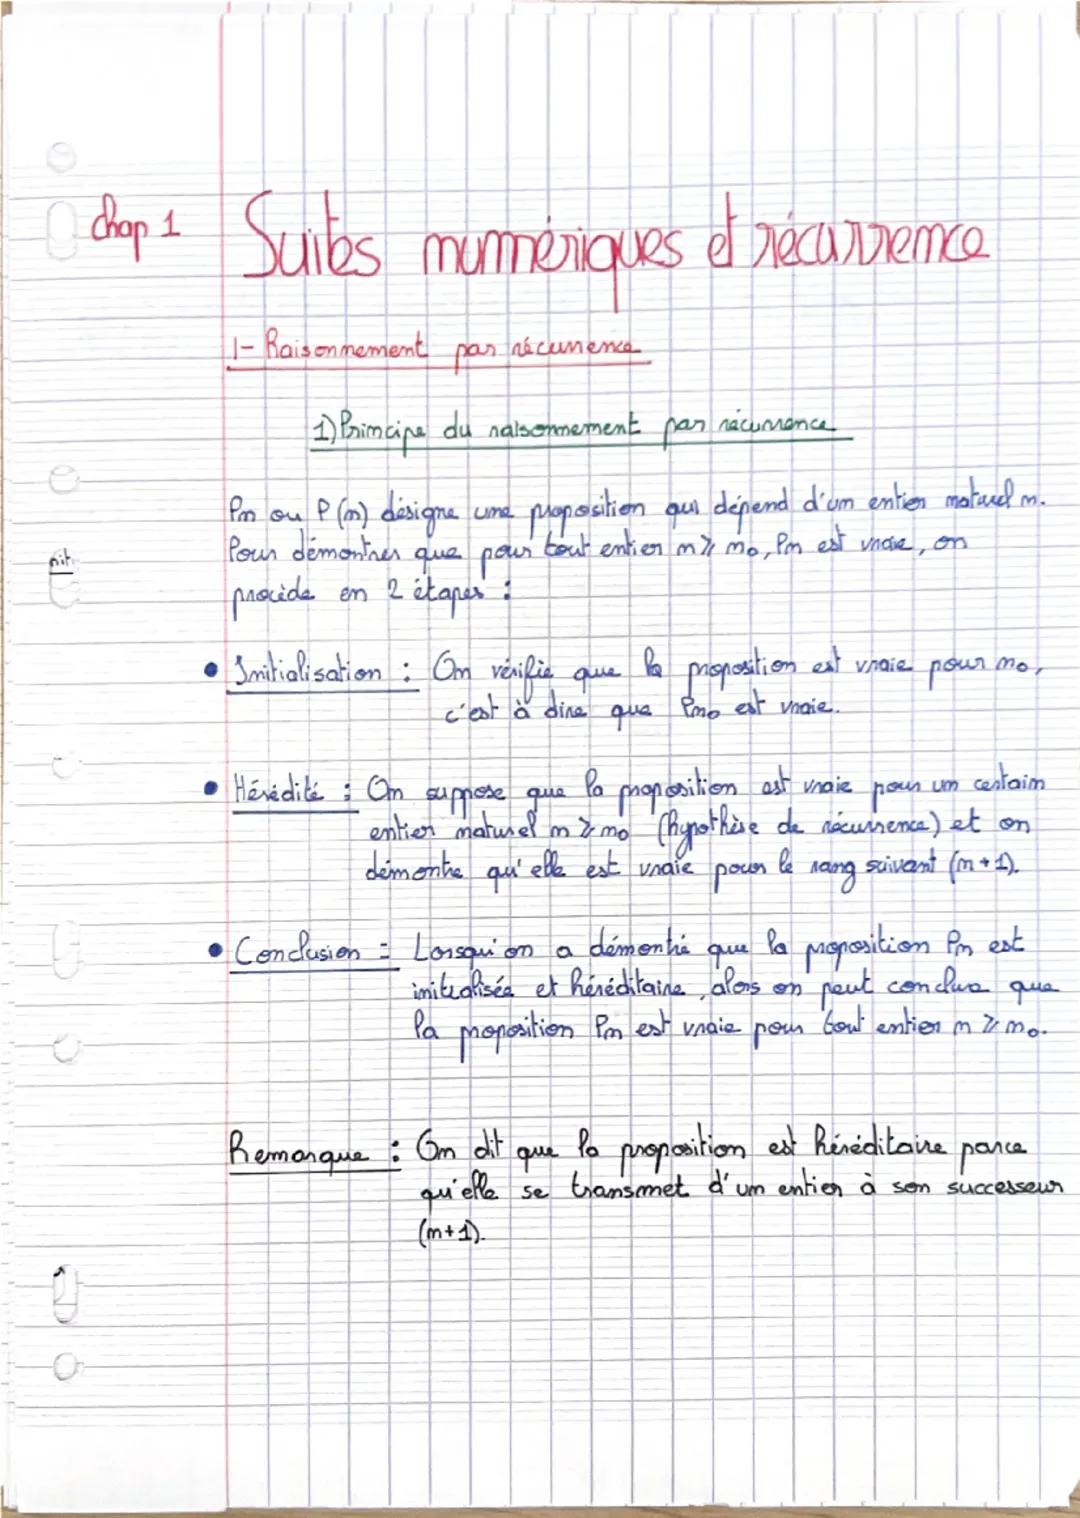 chap 1 Suites numériques et récurrence
1- Raisonnement par récurrence
1) Principe du raisonnement par récurrence
Pn ou P(n) désigne une proposition qui dépend d'un entier naturel n.
Pour démontrer que pour tout entier n ⩾ n₀, Pn est vraie, on
procède en 2 étapes :
• Initialisation : On vérifie que la proposition est vraie pour n₀,
c'est à dire que Pn₀ est vraie.
• Hérédité : On suppose que la proposition est vraie pour un certain
entier naturel n ⩾ n₀ (hypothèse de récurrence) et on
démontre qu'elle est vraie pour le rang suivant (n+1).
• Conclusion : Lorsqu'on a démontré que la proposition Pn est
initialisée et héréditaire, alors on peut conclure que
la proposition Pn est vraie pour tout entier n ⩾ n₀.
Remarque : On dit que la proposition est héréditaire parce
qu'elle se transmet d'un entier à son successeur
(n+1).